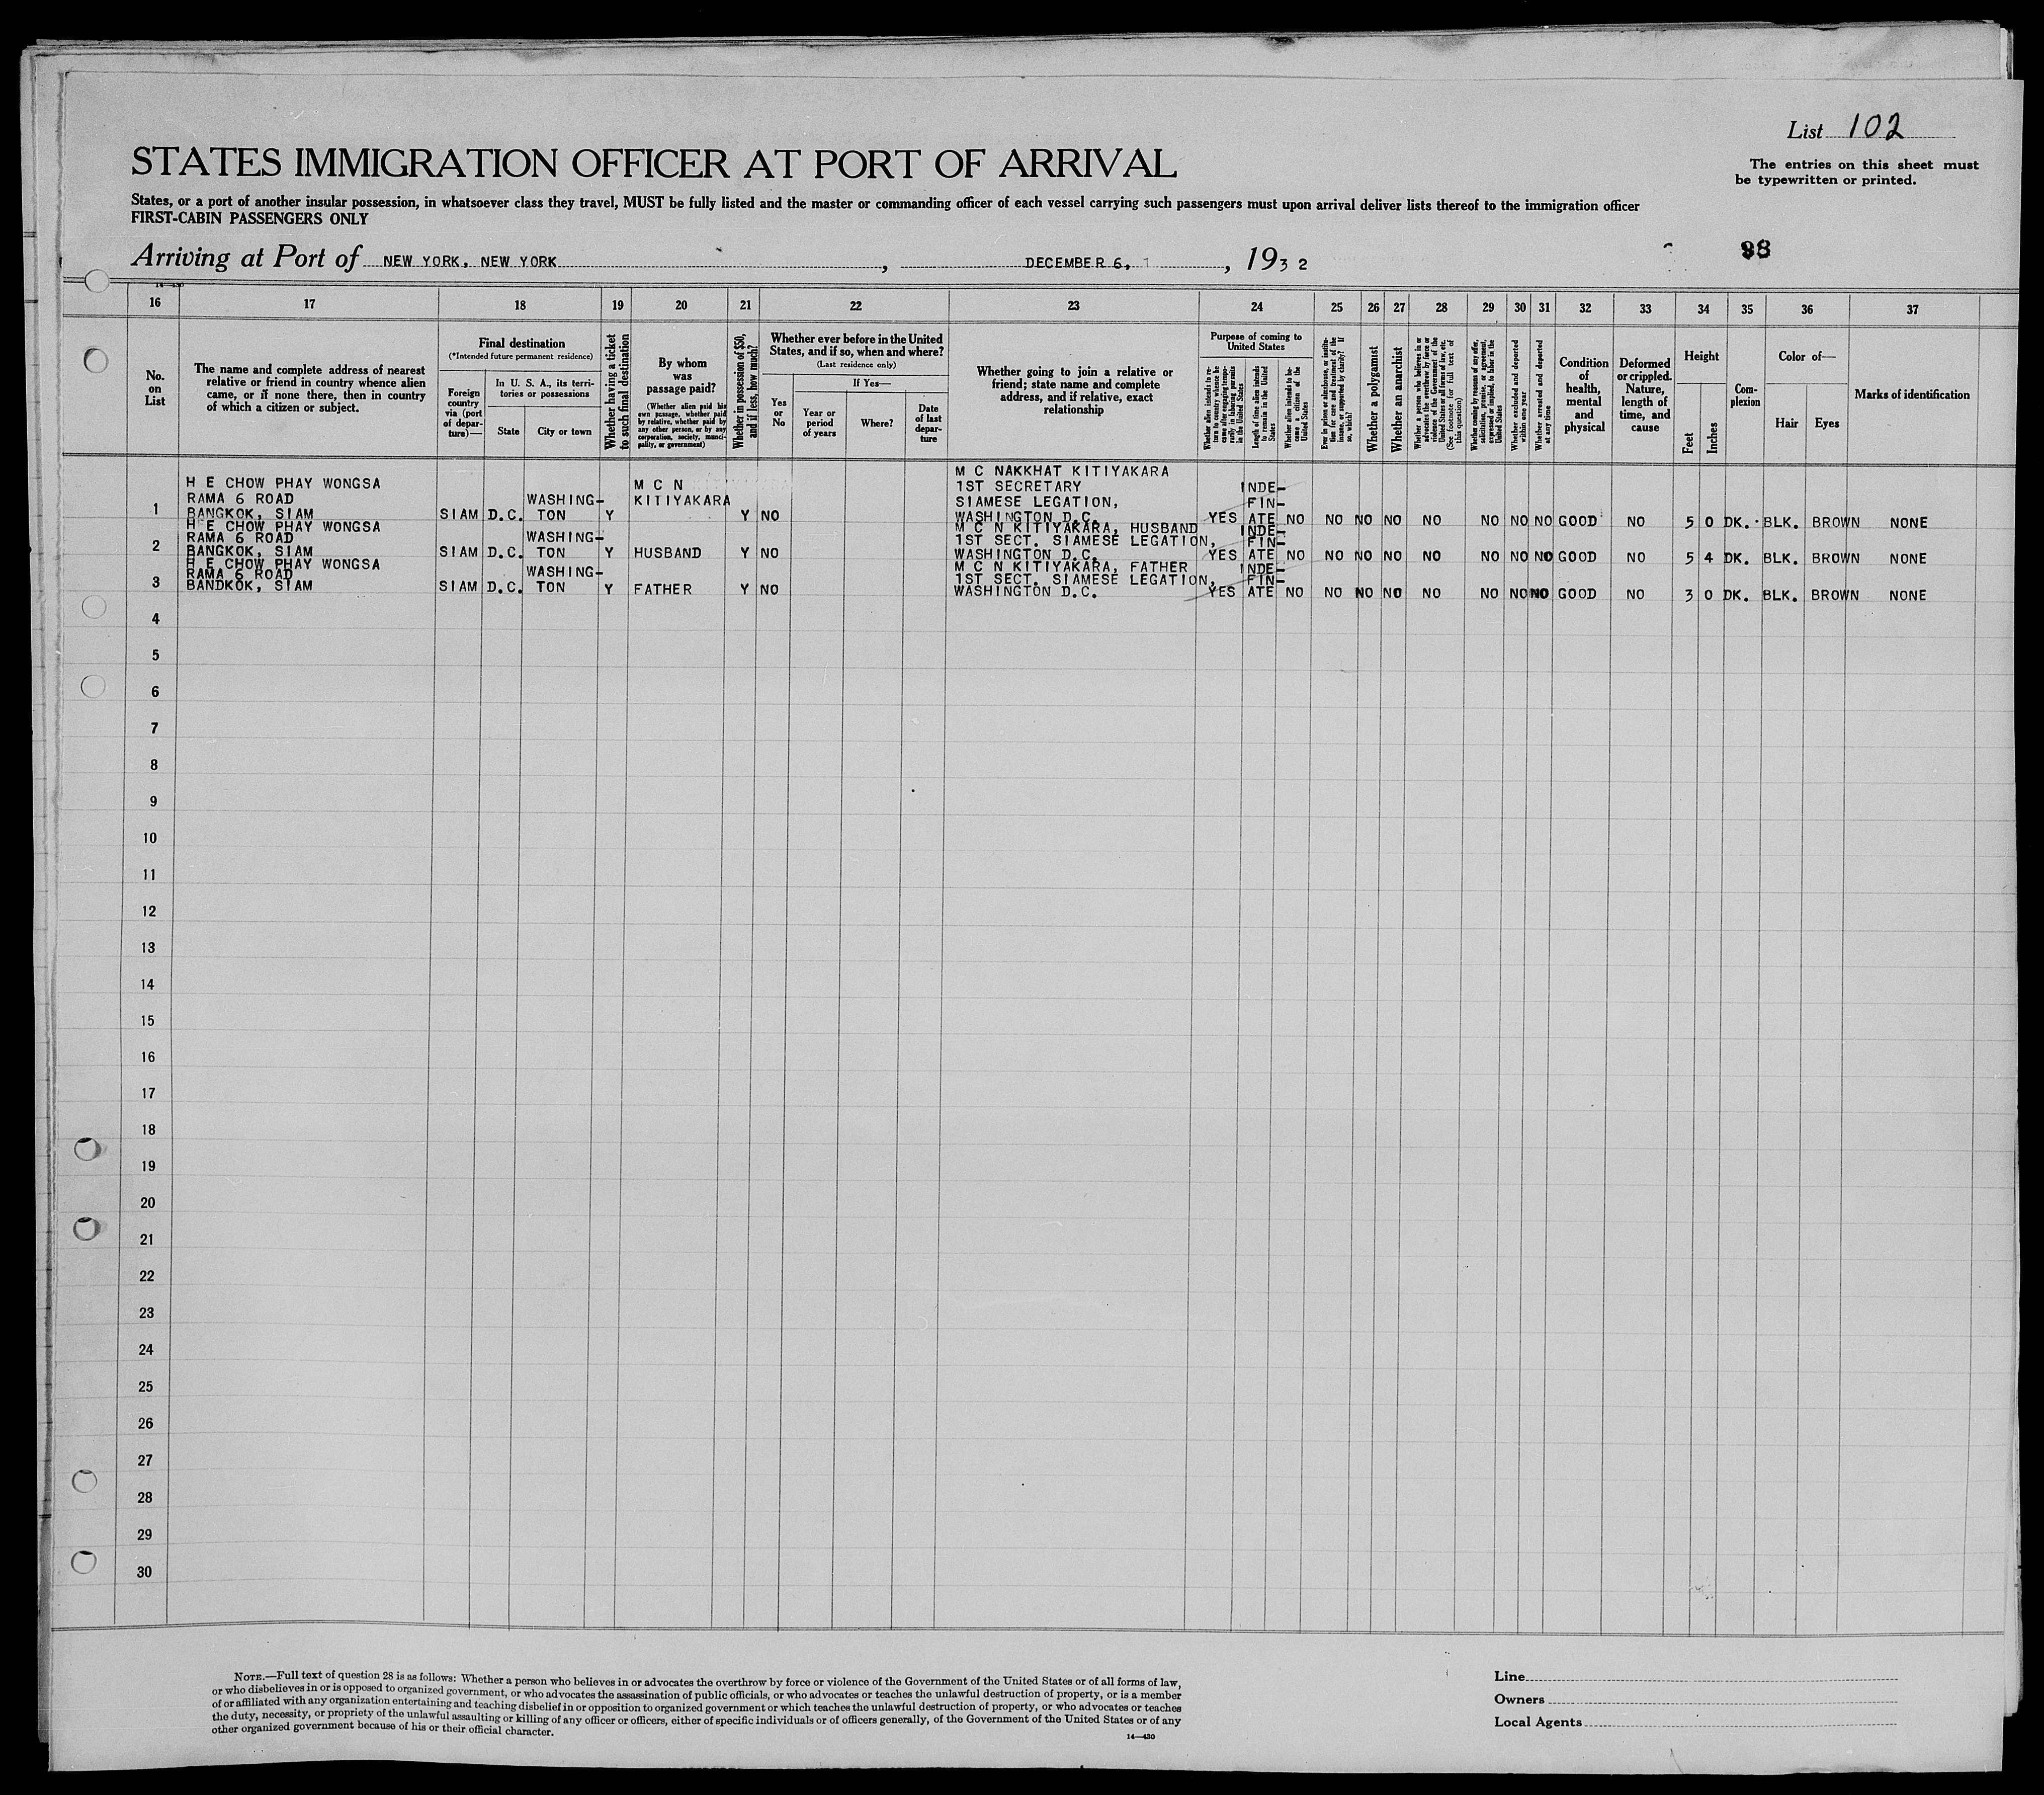 List 102
STATES IMMIGRATION OFFICER AT PORT OF ARRIVAL
The entries on this sheet must
be typewritten or printed.
States, or a port of another insular possession, in whatsoever class they travel, MUST be fully listed and the master or commanding officer of each vessel carrying such passengers must upon arrival deliver lists thereof to the immigration officer
FIRST-CABIN PASSENGERS ONLY
Arriving at Port of NEW YORK, NEW YORK, DECEMBER 6, 1932
16 17 18 19 20 21 22 23 24 25 26 27 28 29 30 31 32 33 34 35 36 37
No.
on
List
The name and complete address of nearest
relative or friend in country whence alien
came, or if none there, then in country
of which a citizen or subject.
Final destination
(*Intended future permanent residence)
Foreign
country
via (port
of depar-
ture)—
In U. S. A., its terri-
tories or possessions
State
City or town
Whether having a ticket
to such final destination
By whom
was
passage paid?
(Whether alien paid his
own passage, whether paid
by relative, whether paid by
any other person, or by any
corporation, society, munici-
pality, or government)
Whether in possession of $50,
and if less, how much?
Whether ever before in the United
States, and if so, when and where?
(Last residence only)
Yes
or
No
If Yes—
Year or
period
of years
Where?
Date
of last
depar-
ture
Whether going to join a relative or
friend; state name and complete
address, and if relative, exact
relationship
Purpose of coming to
United States
Whether alien intends to re-
turn to country whence he
came after engaging tempo-
rarily in laboring pursuits
in the United States
Length of time alien intends
to remain in the United
States
Whether alien intends to be-
come a citizen of the
United States
Ever in prison or almshouse, or institu-
tion for care and treatment of the
insane, or supported by charity? If
so, which?
Whether a polygamist
Whether an anarchist
Whether a person who believes in or
advocates the overthrow by force or
violence of the Government of the
United States or all forms of law, etc.
(See footnote for full text of
this question)
Whether coming by reasons of any offer,
solicitation, promise, or agreement,
expressed or implied, to labor in the
United States
Whether excluded and deported
within one year
Whether arrested and deported
at any time
Condition
of
health,
mental
and
physical
Deformed
or crippled.
Nature,
length of
time, and
cause
Height
Feet
Inches
Com-
plexion
Color of—
Hair
Eyes
Marks of identification
H E CHOW PHAY WONGSA M C N M C NAKKHAT KITIYAKARA
1ST SECRETARY INDE-
RAMA 6 ROAD WASHING- KITIYAKARA SIAMESE LEGATION, FIN-
1 BANGKOK, SIAM SIAM D.C. TON Y Y NO WASHINGTON D.C. YES ATE NO NO NO NO NO NO NO NO GOOD NO 5 0 DK. BLK. BROWN NONE
H E CHOW PHAY WONGSA M C N KITIYAKARA, HUSBAND INDE-
RAMA 6 ROAD WASHING- 1ST SECT. SIAMESE LEGATION, FIN-
2 BANGKOK, SIAM SIAM D.C. TON Y HUSBAND Y NO WASHINGTON D.C. YES ATE NO NO NO NO NO NO NO NO GOOD NO 5 4 DK. BLK. BROWN NONE
H E CHOW PHAY WONGSA M C N KITIYAKARA, FATHER INDE-
RAMA 6 ROAD WASHING- 1ST SECT. SIAMESE LEGATION, FIN-
3 BANDKOK, SIAM SIAM D.C. TON Y FATHER Y NO WASHINGTON D.C. YES ATE NO NO NO NO NO NO NO NO GOOD NO 3 0 DK. BLK. BROWN NONE
4
5
6
7
8
9
10
11
12
13
14
15
16
17
18
19
20
21
22
23
24
25
26
27
28
29
30
NOTE.—Full text of question 28 is as follows: Whether a person who believes in or advocates the overthrow by force or violence of the Government of the United States or of all forms of law,
or who disbelieves in or is opposed to organized government, or who advocates the assassination of public officials, or who advocates or teaches the unlawful destruction of property, or is a member
of or affiliated with any organization entertaining and teaching disbelief in or opposition to organized government or which teaches the unlawful destruction of property, or who advocates or teaches
the duty, necessity, or propriety of the unlawful assaulting or killing of any officer or officers, either of specific individuals or of officers generally, of the Government of the United States or of any
other organized government because of his or their official character.
14—430
Line
Owners
Local Agents